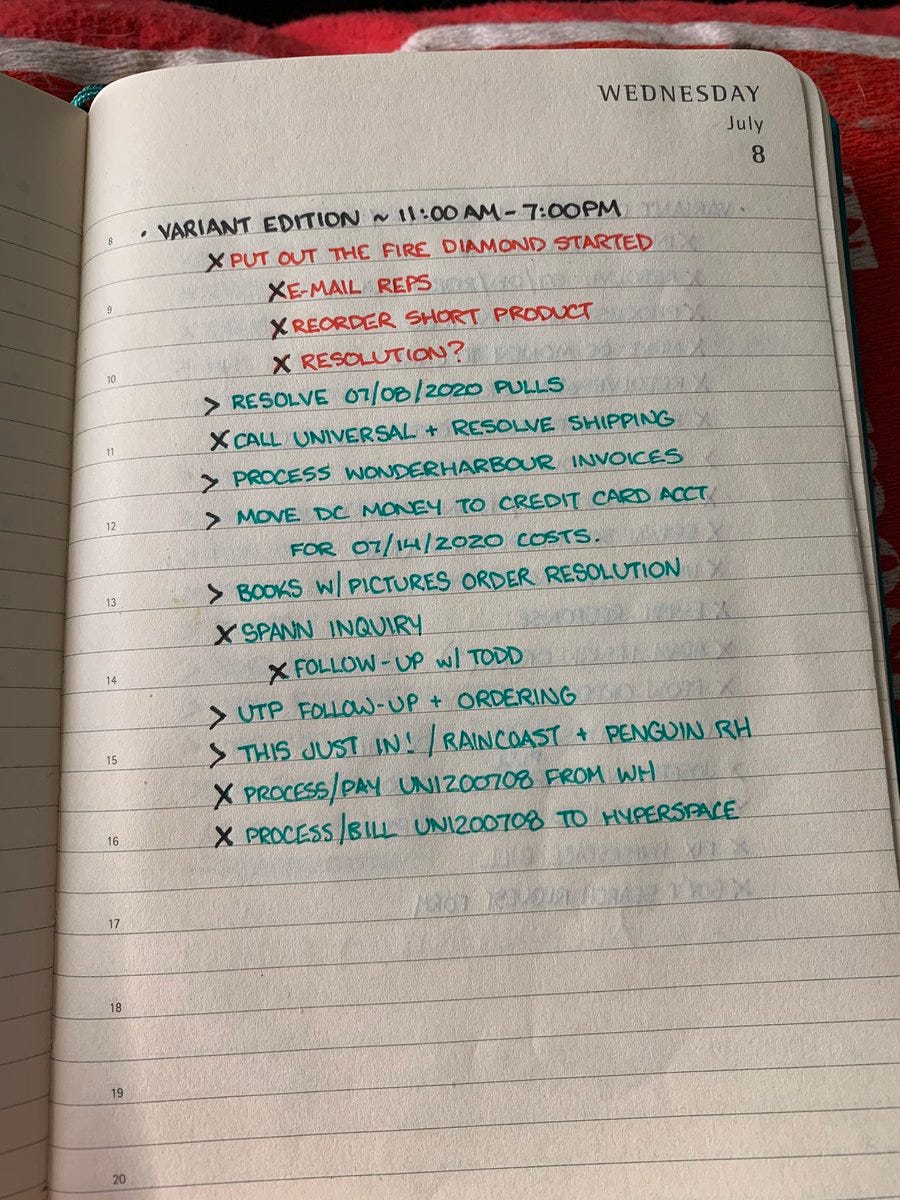 WEDNESDAY
July
8
8 · VARIANT EDITION ~ 11:00 AM - 7:00PM
X PUT OUT THE FIRE DIAMOND STARTED
9 X E-MAIL REPS
X REORDER SHORT PRODUCT
10 X RESOLUTION?
> RESOLVE 07/08/2020 PULLS
11 X CALL UNIVERSAL + RESOLVE SHIPPING
> PROCESS WONDERHARBOUR INVOICES
12 > MOVE DC MONEY TO CREDIT CARD ACCT
FOR 07/14/2020 COSTS.
13 > BOOKS W/ PICTURES ORDER RESOLUTION
X SPANN INQUIRY
14 X FOLLOW-UP w/ TODD
> UTP FOLLOW-UP + ORDERING
15 > THIS JUST IN! / RAINCOAST + PENGUIN RH
X PROCESS/PAY UNI200708 FROM WH
16 X PROCESS/BILL UNI200708 TO HYPERSPACE
17
18
19
20